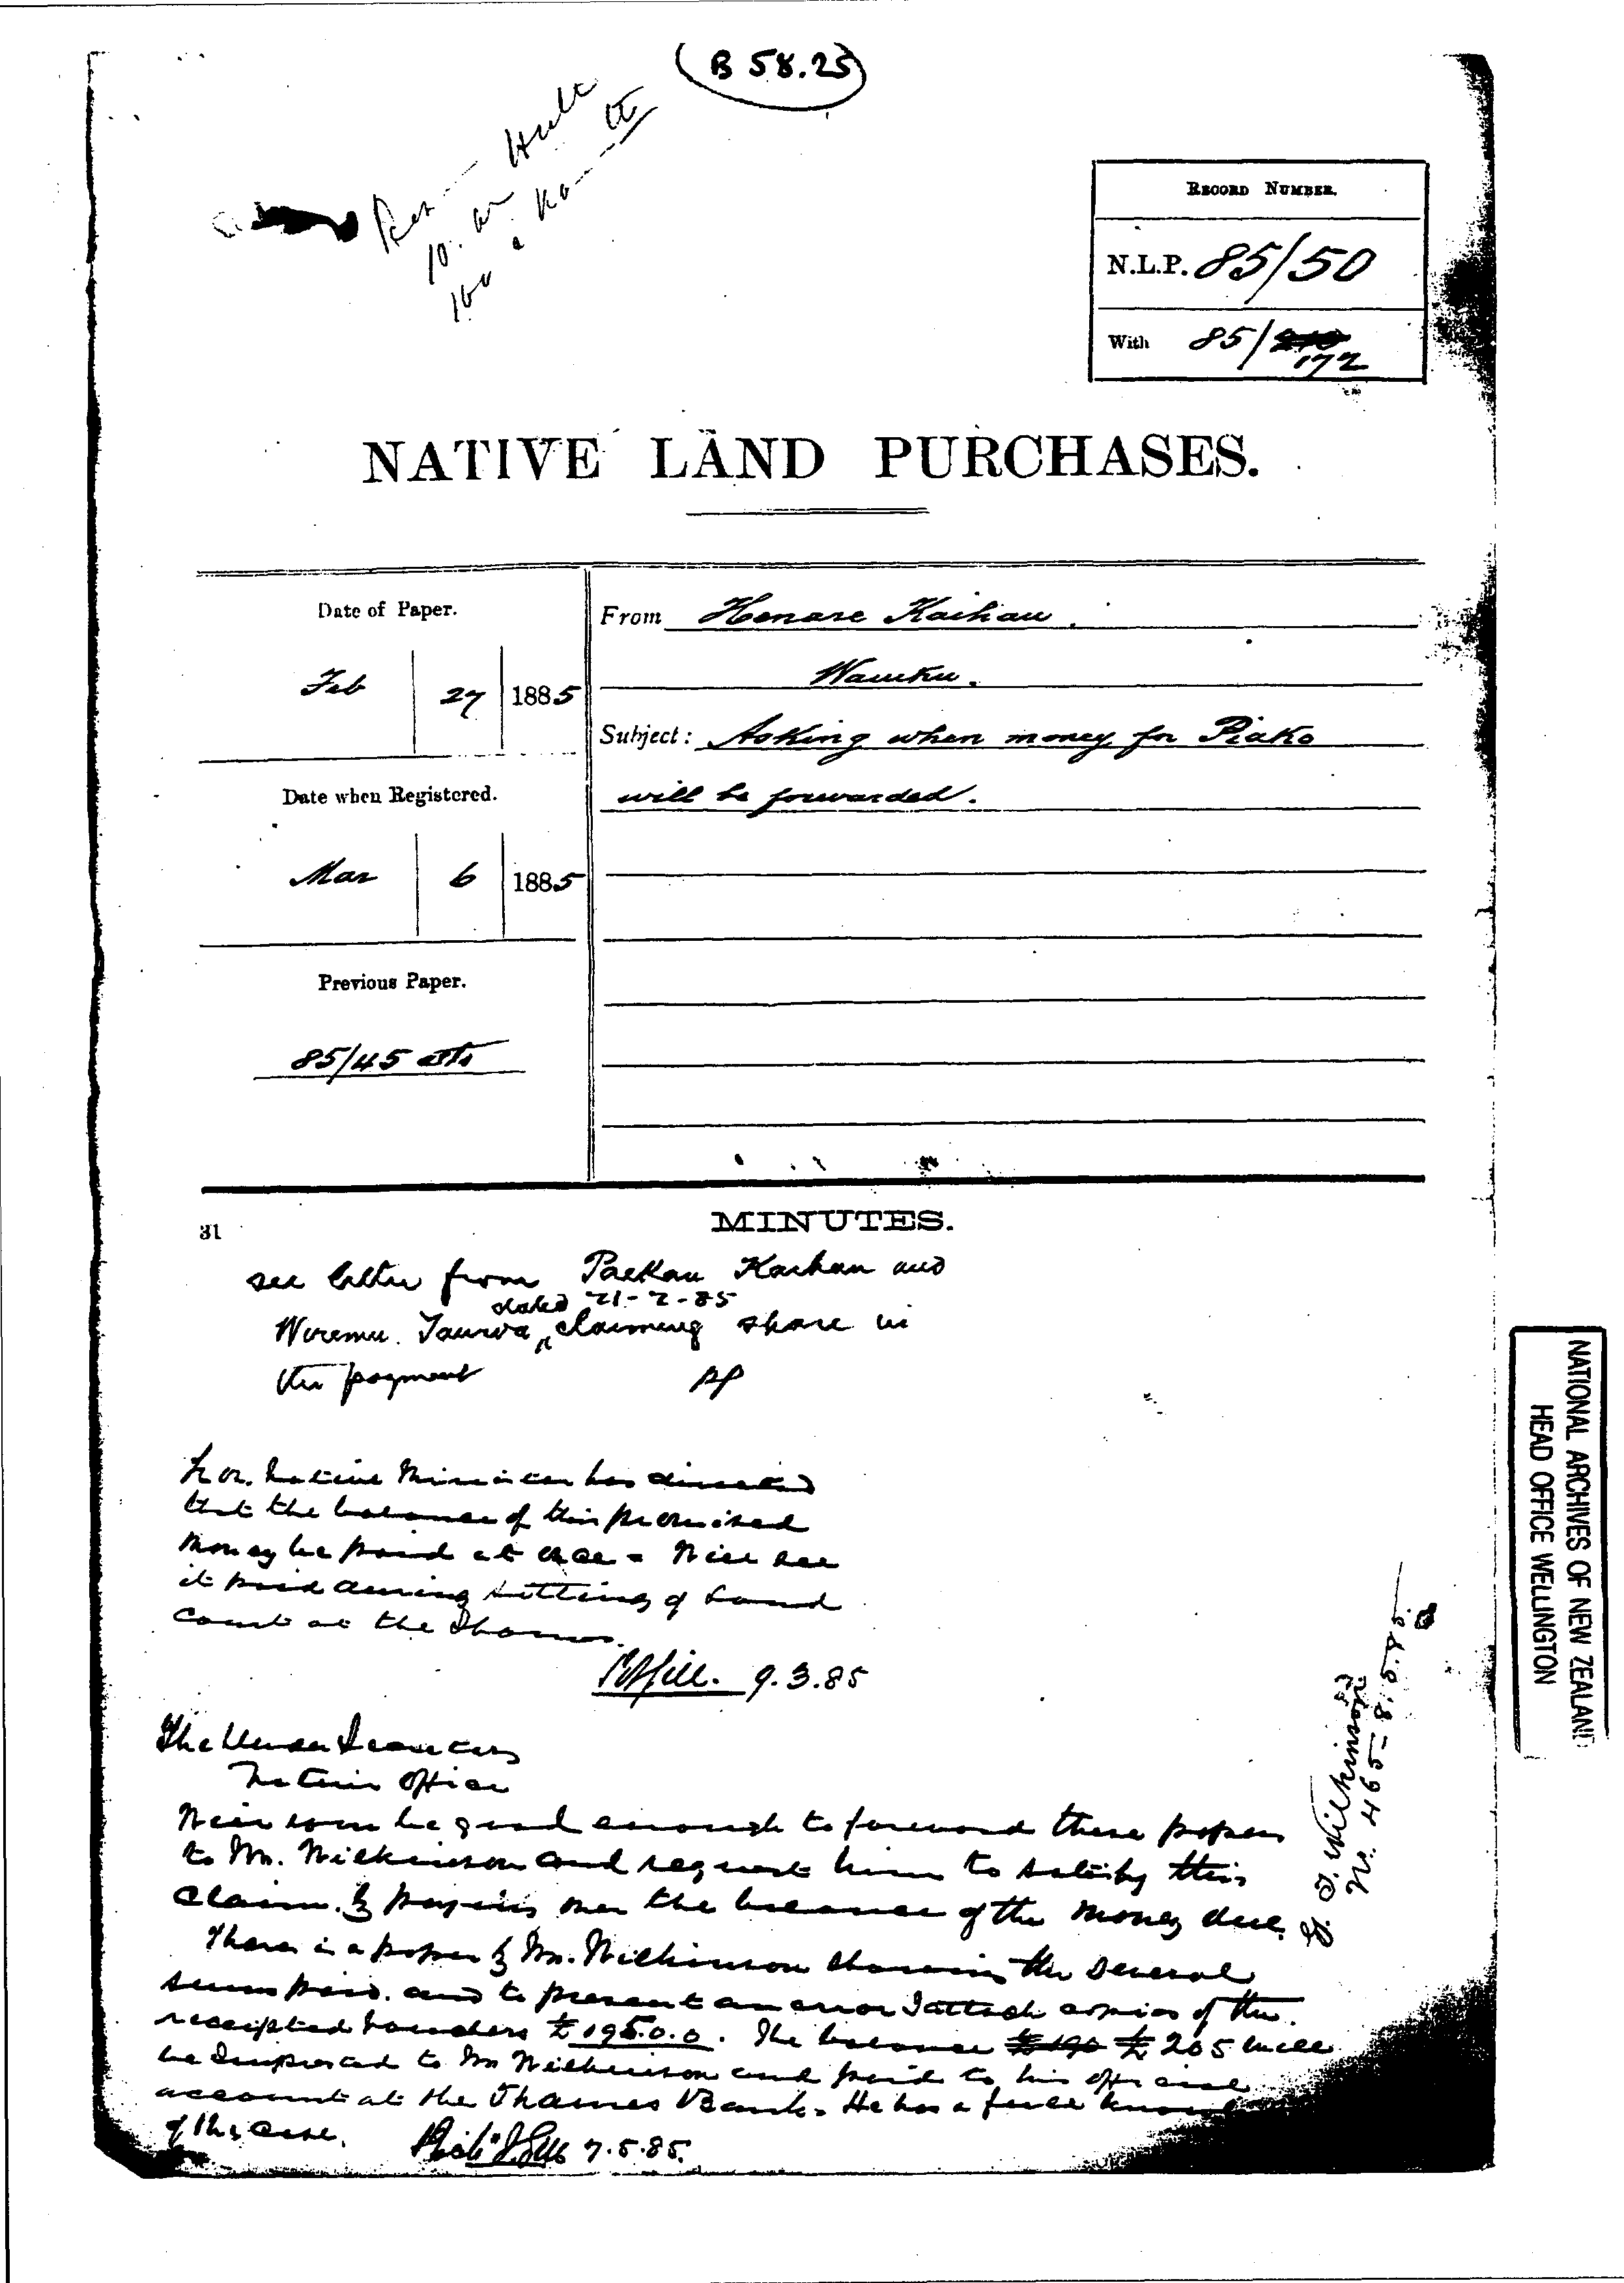 B 58.25
RECORD NUMBER.
N.L.P. 85/50
With 85/210
172
NATIVE LAND PURCHASES.
Date of Paper.
Feb 27 1885
Date when Registered.
Mar 6 1885
Previous Paper.
85/45
From Henare Kaihau.
Waiuku.
Subject: Asking when money for Piako
will be forwarded.
31
MINUTES.
see letter from Paekau Kaihau and
dated 21-2-85
Wiremu Tauroa, claiming share in
the payment
Hon. Native Minister has directed
that the balance of this promised
money be paid at once - Will see
it paid during sitting of Land
Court at the Thames.
9.3.85
The Under Secretary
Native Office
Will you be good enough to forward these papers
to Mr. Wilkinson and request him to satisfy this
claim by paying over the balance of the money due.
There is a paper by Mr. Wilkinson showing the several
sums paid. and to prevent an error I attach copies of the
receipted vouchers £195.0.0. The balance £190 £205 will
be Imprested to Mr Wilkinson and paid to his official
account at the Thames Bank. He has a full
of the case.
7.5.85.
G. T. Wilkinson
No. 465 - 8.5.85
NATIONAL ARCHIVES OF NEW ZEALAND
HEAD OFFICE WELLINGTON